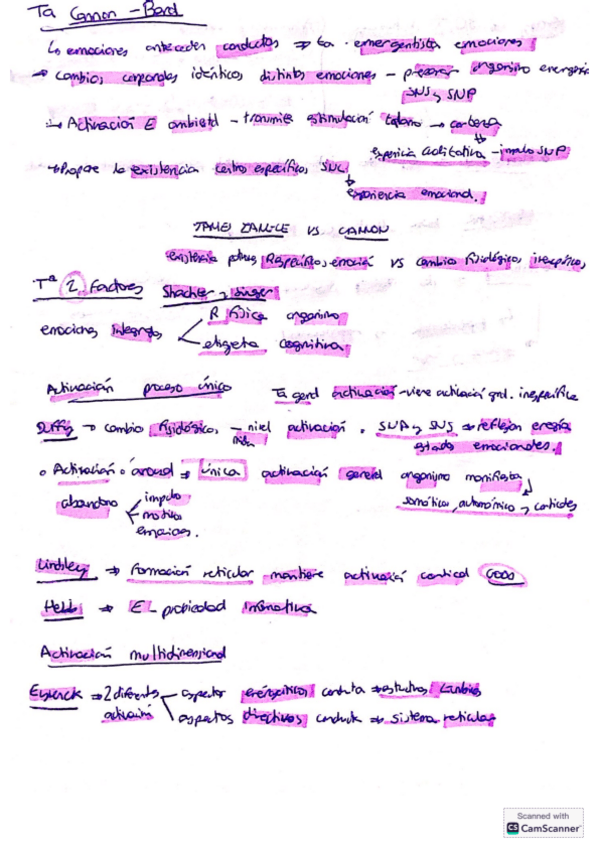 Ta Cannon - Bard
Las emociones anteceden conductas ⇒ ta. emergentista emociones
→ Cambios corporales idénticos distintas emociones - preparar organismo energía
SNS y SNP
↳ Activación E ambiental - transmite estimulación tálamo → corteza
experiencia cualitativa - impulso SNP
↳ Propone la existencia centro específicos SNC
experiencia emocional.
JAMES LANGE VS. CANNON
existencia patrones R específicos emoción vs cambios fisiológicos inespecíficos
Tª 2 Factores Shachter y Singer
R física organismo
emociones integradas
etiqueta cognitiva
Activación proceso único Ta geral activación - viene activación gral. inespecífica
Duffy → cambio fisiológicos - nivel activación. SNA y SNS ⇒ reflejan energía
estados emocionales.
o Activación o arousal ⇒ única activación general organismo manifiesta
abandono impulso somáticos, autonómico y corticales
motivos
emociones.
Lindsley ⇒ Formación reticular mantiene activación cortical
Hebb ⇒ E propiedad informativa
Activación multidimensional
Eysenck ⇒ 2 diferentes aspectos energéticos conducta ⇒ estructuras límbicas
activación aspectos directivos conducta ⇒ sistema reticular
Scanned with
CS CamScanner